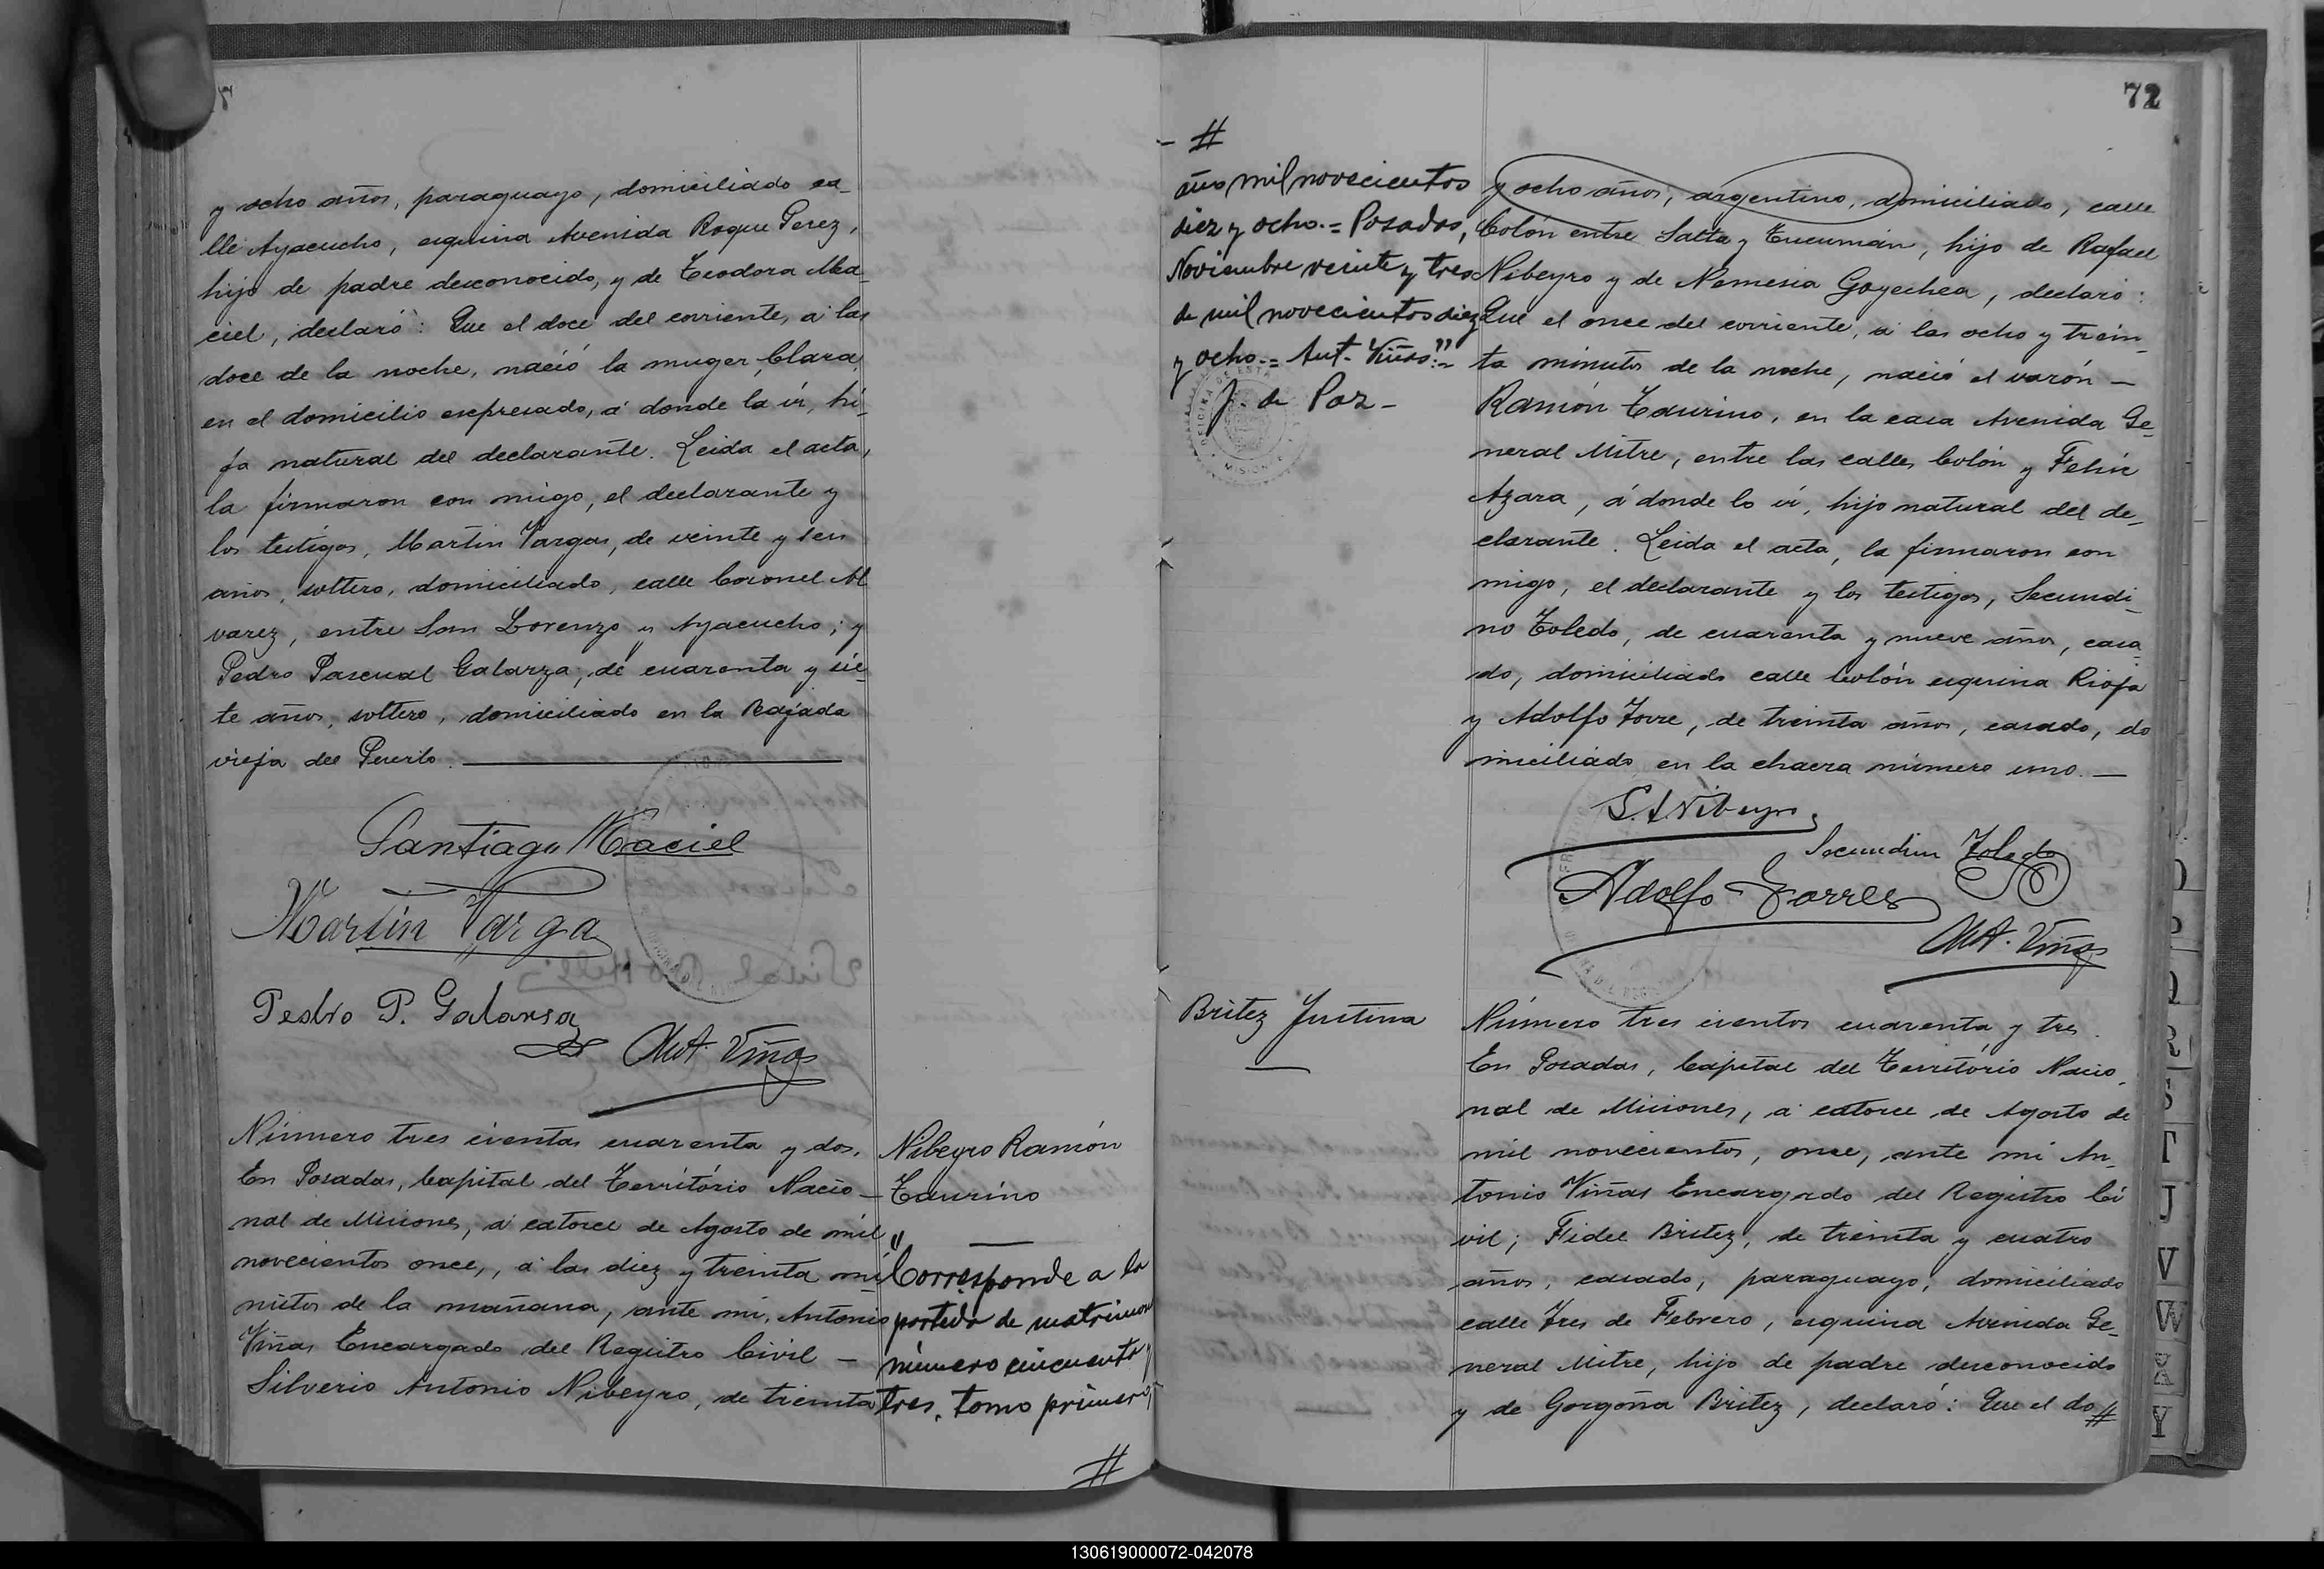 y ocho años, paraguayo, domiciliado ca-
lle Ayacucho, esquina Avenida Roque Perez,
hijo de padre desconocido, y de Teodora Ma-
ciel, declaró: Que el doce del corriente, á las
doce de la noche, nació la muger, Clara,
en el domicilio expresado, á donde la vi, hi-
ja natural del declarante. Leida el acta,
la firmaron con migo, el declarante y
los testigos, Martin Vargas, de veinte y seis
años, soltero, domiciliado, calle Coronel Al
varez, entre San Lorenzo y Ayacucho; y
Pedro Pascual Galarza, de cuarenta y sie-
te años, soltero, domiciliado en la Bajada
vieja del Puerto.
Santiago Maciel
Martin Varga
Pedro P. Galarsa
Ant. Viñas
Número tres cientos cuarenta y dos.
En Posadas, Capital del Território Nacio-
nal de Misiones, á catorce de Agosto de mil
novecientos once,, á las diez y treinta mi-
nutos de la mañana, ante mi, Antonio
Viñas Encargado del Registro Civil —
Silverio Antonio Nibeyro, de treinta
Nibeyro Ramón
Taurino
"Corresponde a la
partida de matrimon
número cincuenta y
tres, tomo primero,
#
72
- #
año mil novecientos
diez y ocho.= Posadas,
Noviembre veinte y tres
de mil novecientos diez
y ocho.= Ant. Viñas."-
J. de Paz -
y ocho años, argentino, domiciliado, calle
Colón entre Salta y Tucumán, hijo de Rafael
Nibeyro y de Nemesia Goyechea, declaró:
Que el once del corriente, á las ocho y trein-
ta minutos de la noche, nació el varón —
Ramón Taurino, en la casa Avenida Ge-
neral Mitre, entre las calles Colón y Felix
Azara, á donde lo vi, hijo natural del de-
clarante. Leida el acta, la firmaron con
migo, el declarante y los testigos, Secundi-
no Toledo, de cuarenta y nueve años, casa-
do, domiciliado calle Colón esquina Rioja
y Adolfo Torre, de treinta años, casado, do
miciliado en la chacra número uno. —
S. A. Nibeyro
Secundino Toledo
Adolfo Torres
Ant. Viñas
Britez Justina
Número tres cientos cuarenta y tres.
En Posadas, Capital del Território Nacio-
nal de Misiones, á catorce de Agosto de
mil novecientos, once, ante mi An-
tonio Viñas Encargado del Registro Ci
vil; Fidel Britez, de treinta y cuatro
años, casado, paraguayo, domiciliado
calle Tres de Febrero, esquina Avenida Ge-
neral Mitre, hijo de padre desconocido
y de Gorgoña Britez, declaró: Que el do #
P
Q
R
S
T
J
V
W
X
Y
130619000072-042078